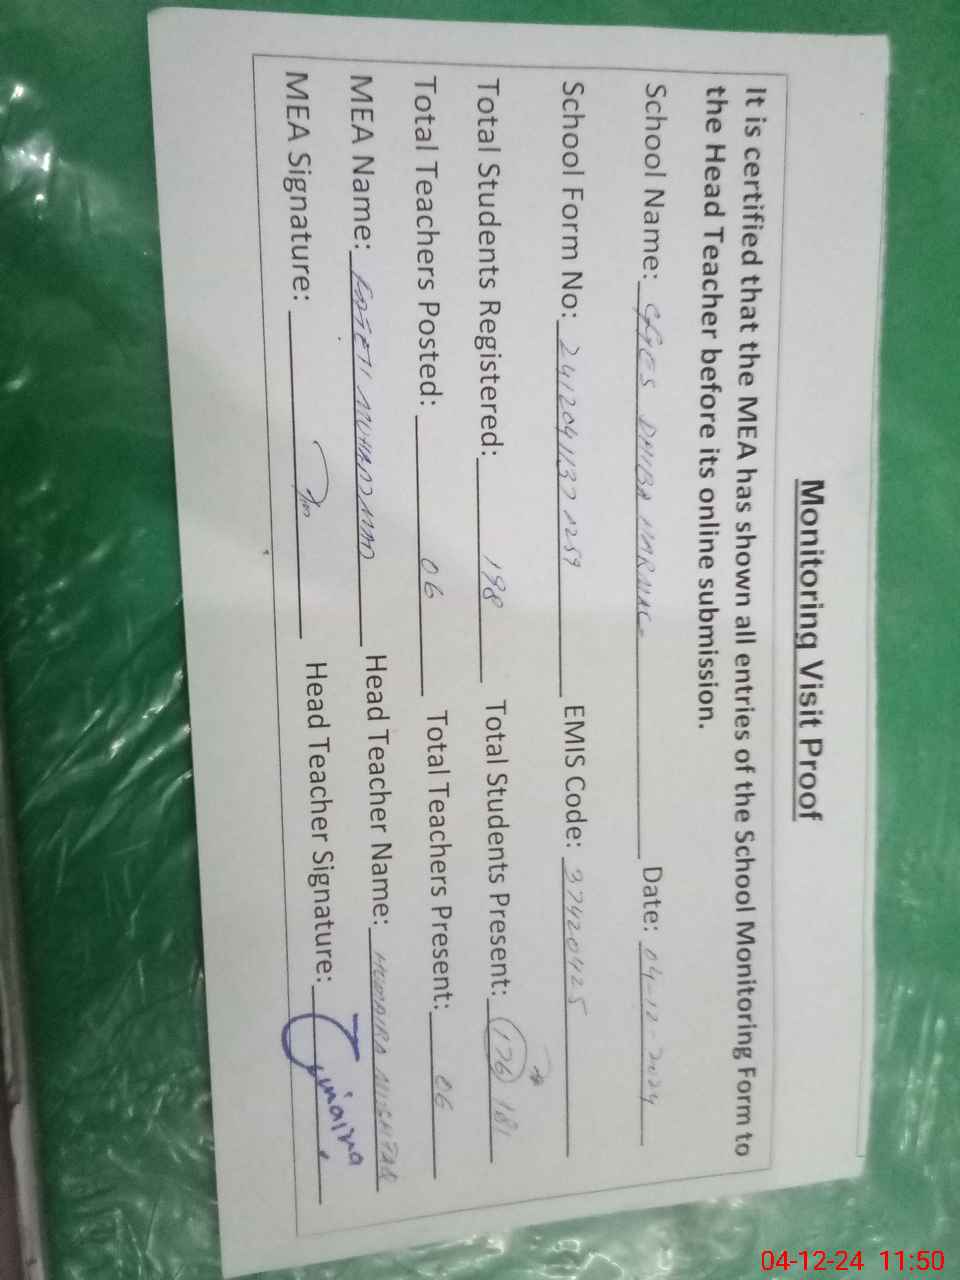 Monitoring Visit Proof
It is certified that the MEA has shown all entries of the School Monitoring Form to
the Head Teacher before its online submission.
School Name: GGES Date: 04-12-2024
School Form No: EMIS Code: 37420425
Total Students Registered: 198 Total Students Present: 176 181
Total Teachers Posted: 06 Total Teachers Present: 06
MEA Name: MUHAMMAD Head Teacher Name: HUMAIRA MUSHTAQ
MEA Signature: Head Teacher Signature:
04-12-24 11:50